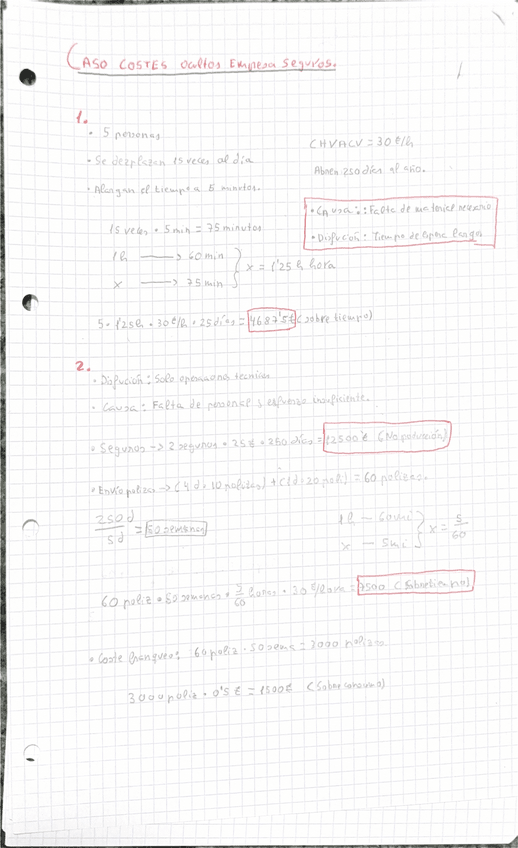 CASO COSTES ocultos Empresa Seguros.
1
1.
• 5 personas
• Se dezplazan 15 veces al día
• Alargan el tiempo a 5 minutos.
CHVACV = 30 €/h
Abren 250 días al año.
• Causa: Falta de material necesario
• Disfución: Tiempo de espera largos
15 veces • 5 min = 75 minutos
1h → 60 min
x → 75 min
x = 1'25 h hora
5 • 1'25h • 30€/h • 25 días = 4687'5€ (sobre tiempo)
2.
• Disfución: Solo operaciones tecnicas
• Causa: Falta de personal y esfuerzo insuficiente.
• Seguros → 2 seguros • 25€ • 250 días = 12500€ (No producción)
• Envío polizas → (4d • 10 polizas) + (1d • 20 poli) = 60 polizas.
250d / 5d = 50 semanas
1h – 60mi
x – 5mi
x = 5/60
60 poliz • 50 semanas • 5/60 horas • 30€/hora = 7500 (Sobretiempo)
• Coste franqueo: 60 poliz • 50 sema = 3000 polizas.
3000 poliz • 0'5€ = 1500€ (Sobreconsumo)